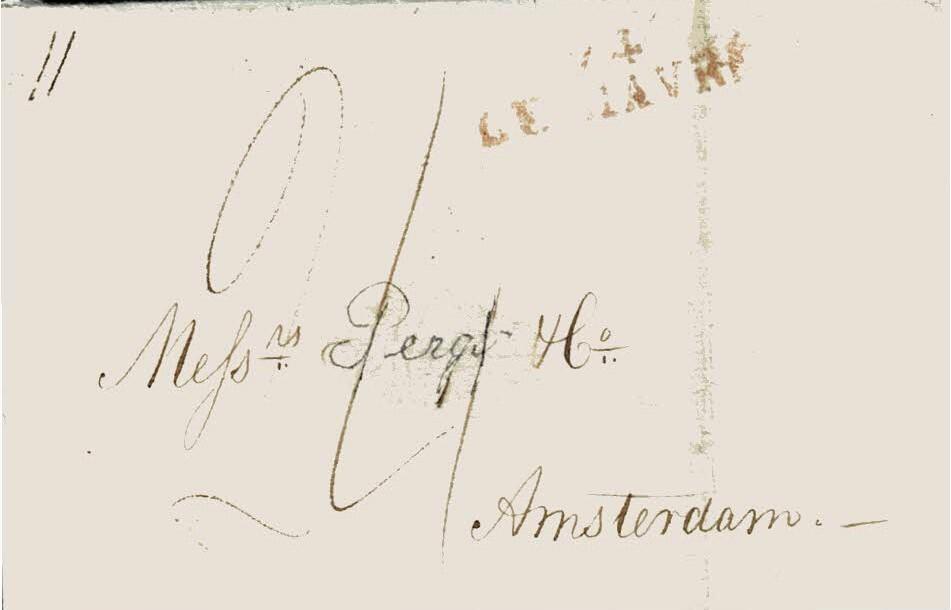 LE HAVRE
Mess.rs Perg & Co.
Amsterdam. —